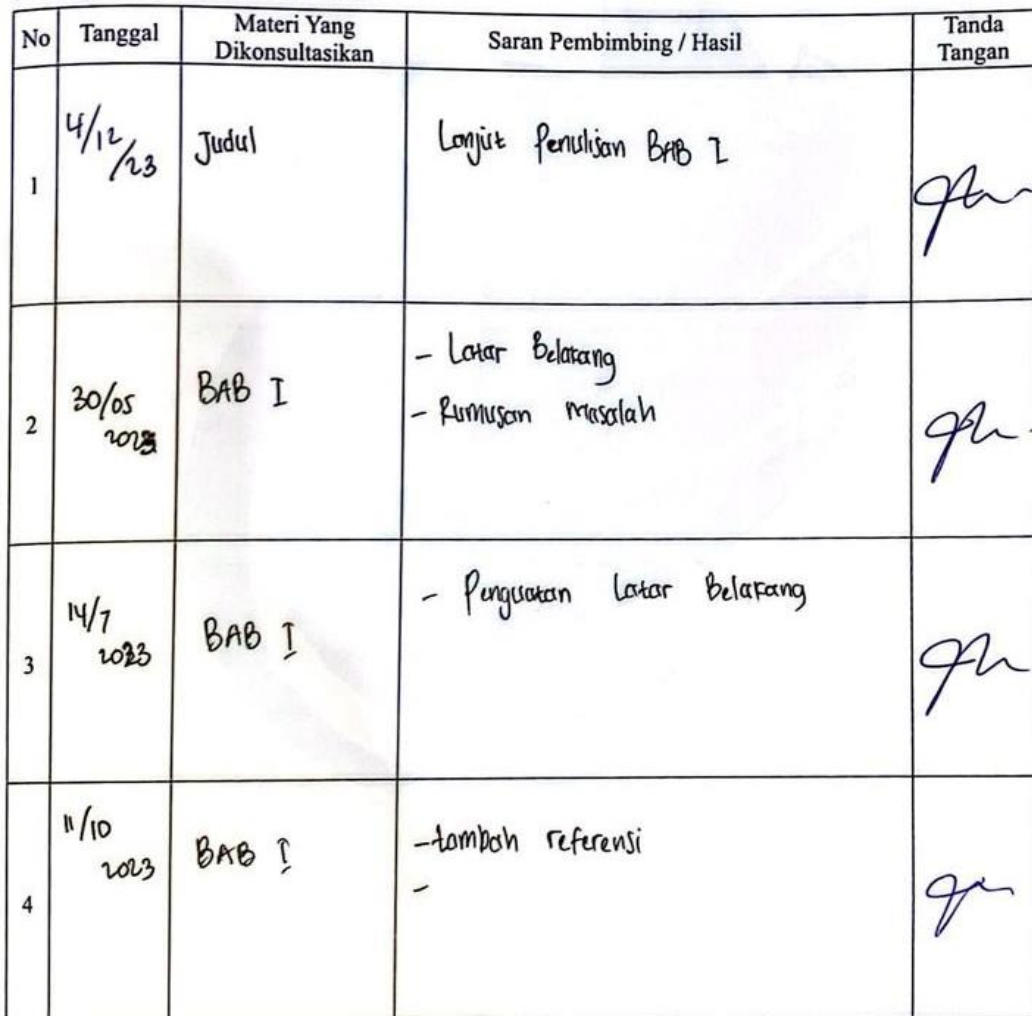 No
Tanggal
Materi Yang
Dikonsultasikan
Saran Pembimbing / Hasil
Tanda
Tangan
1
4/12
/23
Judul
Lanjut Penulisan BAB I
2
30/05
2023
BAB I
- Latar Belakang
- Rumusan masalah
3
14/7
2023
BAB I
- Penguatan Latar Belakang
4
11/10
2023
BAB I
-tambah referensi
-